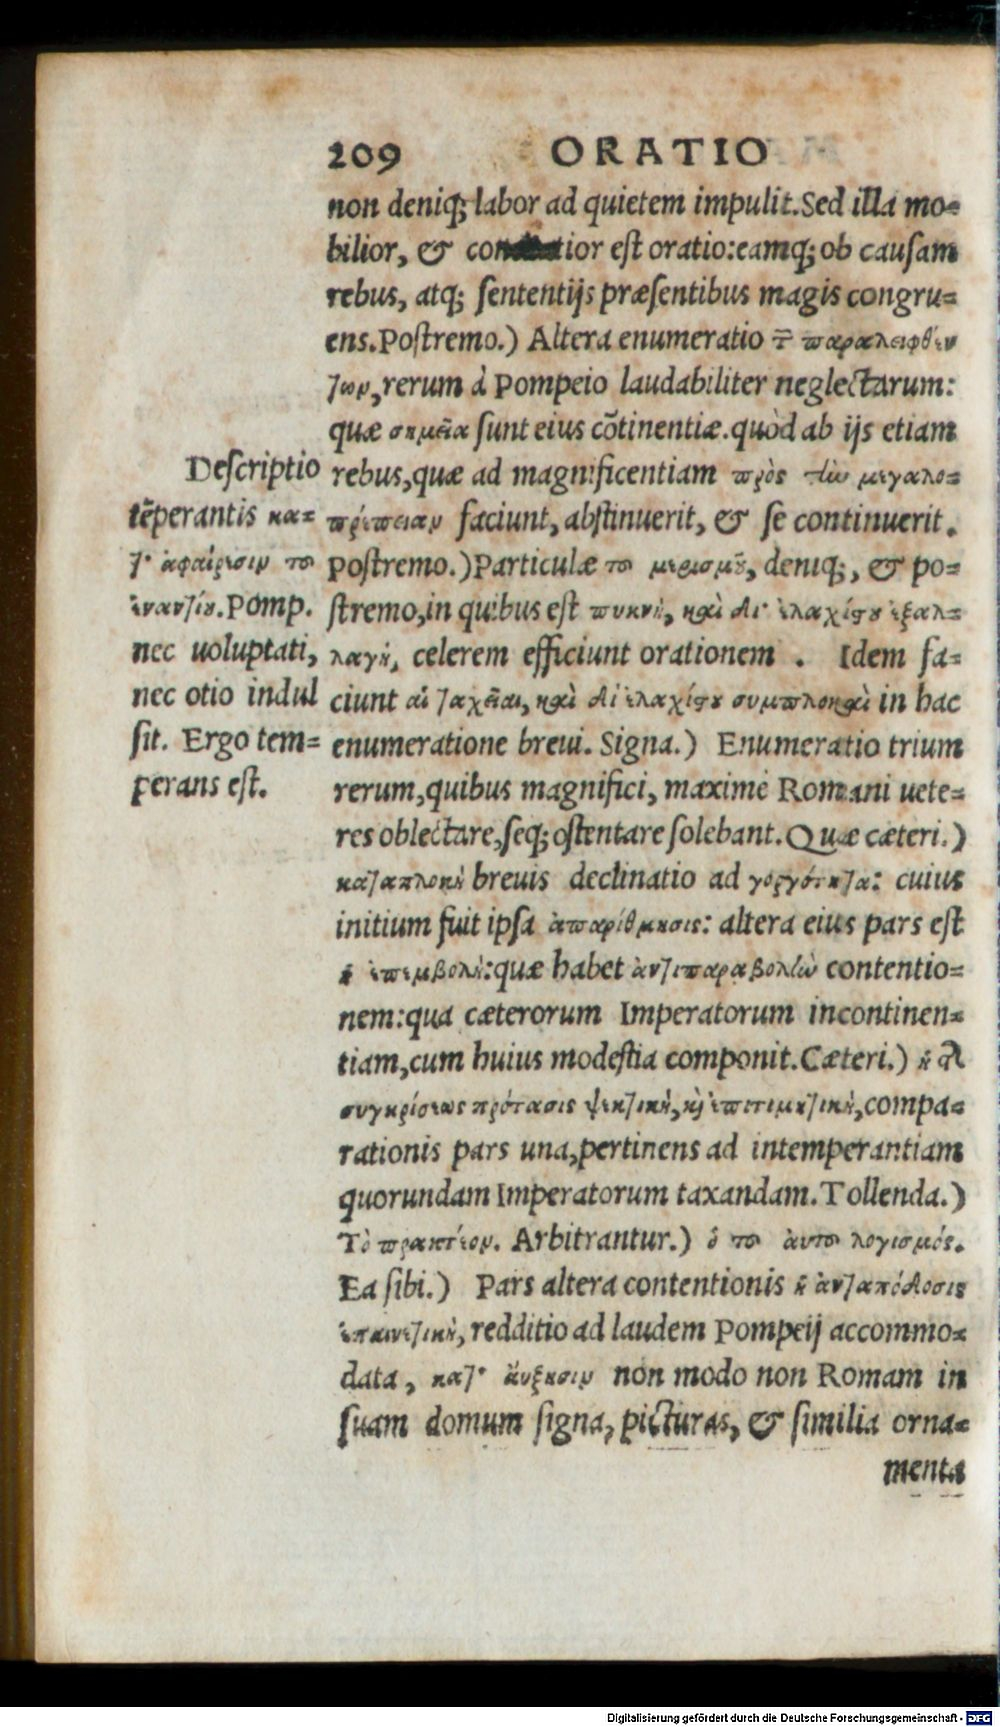 209 ORATIO
non deniq; labor ad quietem impulit. Sed illa mo-
bilior, & est oratio: eamq; ob causam
rebus, atq; sententijs præsentibus magis congru-
ens. Postremo.) Altera enumeratio τ῀ παραλειφθέν
των, rerum à Pompeio laudabiliter neglectarum:
quæ σημεῖα sunt eius cõtinentiæ. quòd ab ijs etiam
rebus, quæ ad magnificentiam πρὸς τὴν μεγαλο-
πρέπειαν faciunt, abstinuerit, & se continuerit.
postremo.) Particulæ το μερισμοῦ, deniq;, & po-
stremo, in quibus est πυκνὴ, καὶ δι' ἐλαχίστου ἐξαλ-
λαγὴ, celerem efficiunt orationem. Idem fa-
ciunt αἱ ταχεῖαι, καὶ δι' ἐλαχίστου συμπλοκαὶ in hac
enumeratione breui. Signa.) Enumeratio trium
rerum, quibus magnifici, maximè Romani uete-
res oblectare, seq; ostentare solebant. Quæ cæteri.)
καταπλοκὴ breuis declinatio ad γοργότητα: cuius
initium fuit ipsa ἀπαρίθμησις: altera eius pars est
ἡ ἐπεμβολὴ: quæ habet ἀντιπαραβολὴν contentio-
nem: qua cæterorum Imperatorum incontinen-
tiam, cum huius modestia componit. Cæteri.) ἡ τῆς
συγκρίσεως πρότασις ψεκτικὴ, καὶ ἐπιτιμητικὴ, compa-
rationis pars una, pertinens ad intemperantiam
quorundam Imperatorum taxandam. Tollenda.)
Τὸ πρακτέον. Arbitrantur.) ὁ το αὐτο λογισμός.
Ea sibi.) Pars altera contentionis ἡ ἀνταπόδοσις
ἐπαινετικὴ, redditio ad laudem Pompeij accommo-
data, κατ' αὔξησιν non modo non Romam in
suam domum signa, picturas, & similia orna-
menta
Descriptio
tẽperantis κα-
τ' ἀφαίρεσιν το
ἐναντίου. Pomp.
nec uoluptati,
nec otio indul
sit. Ergo tem-
perans est.
Digitalisierung gefördert durch die Deutsche Forschungsgemeinschaft - DFG